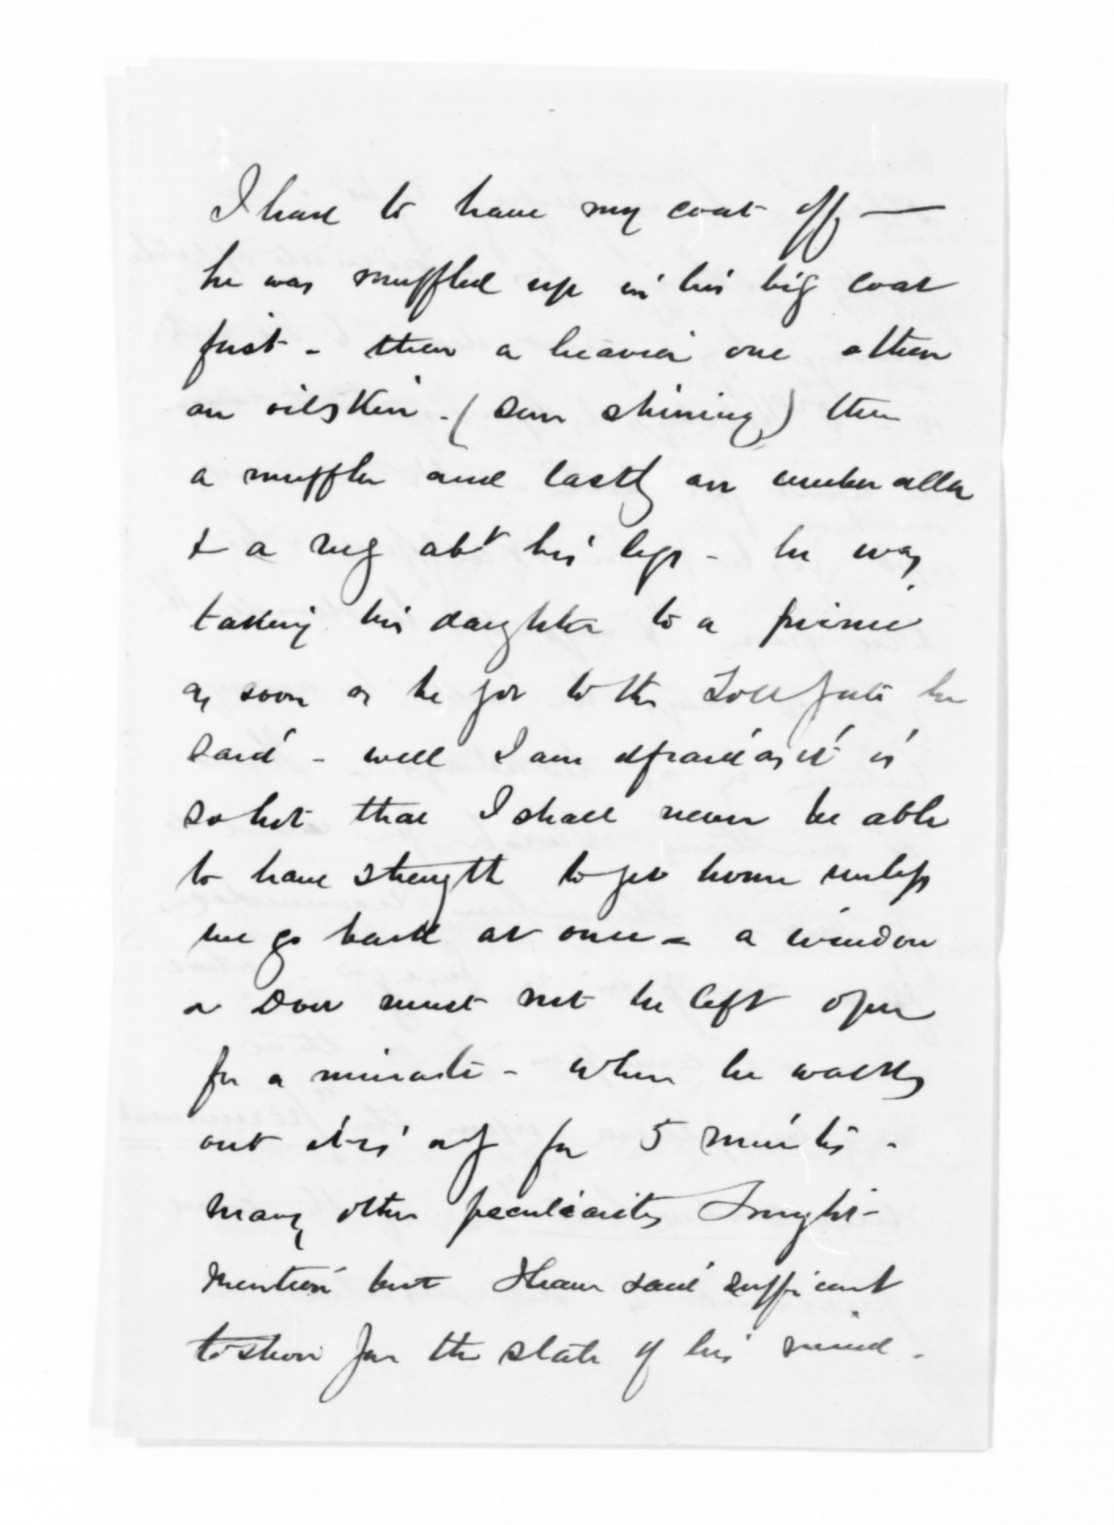 I had to have my coat off —
he was muffled up in his big coat
first - then a heavier one & then
an oilskin - (sun shining) then
a muffler and lastly an umberalla
& a rug abt his legs - he was
taking his daughter to a picnic
as soon as he got to the Toll gate he
said - well I am afraid as it is
so hot that I shall never be able
to have strength to get home unless
we go back at once - a window
or door must not be left open
for a minute - when he walks
out it is only for 5 minutes -
many other peculiarities I might
mention but I have said sufficient
to show for the state of his mind -